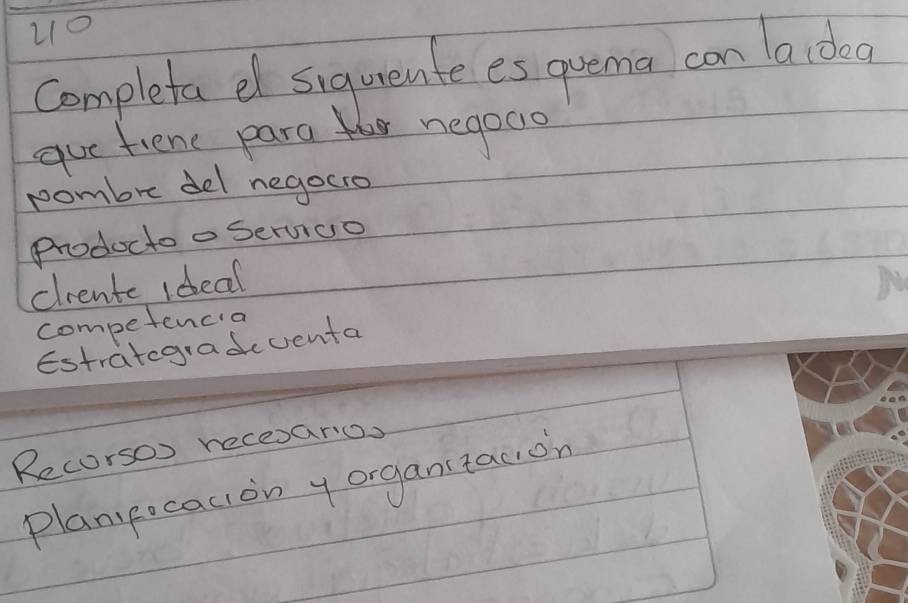 Completa el siguiente esquema con la idea
que tiene para negocio
Nombre del negocio
Producto o Servicio
cliente ideal
competencia
Estrategia de venta
Recursos necesarios
Planificación y organización